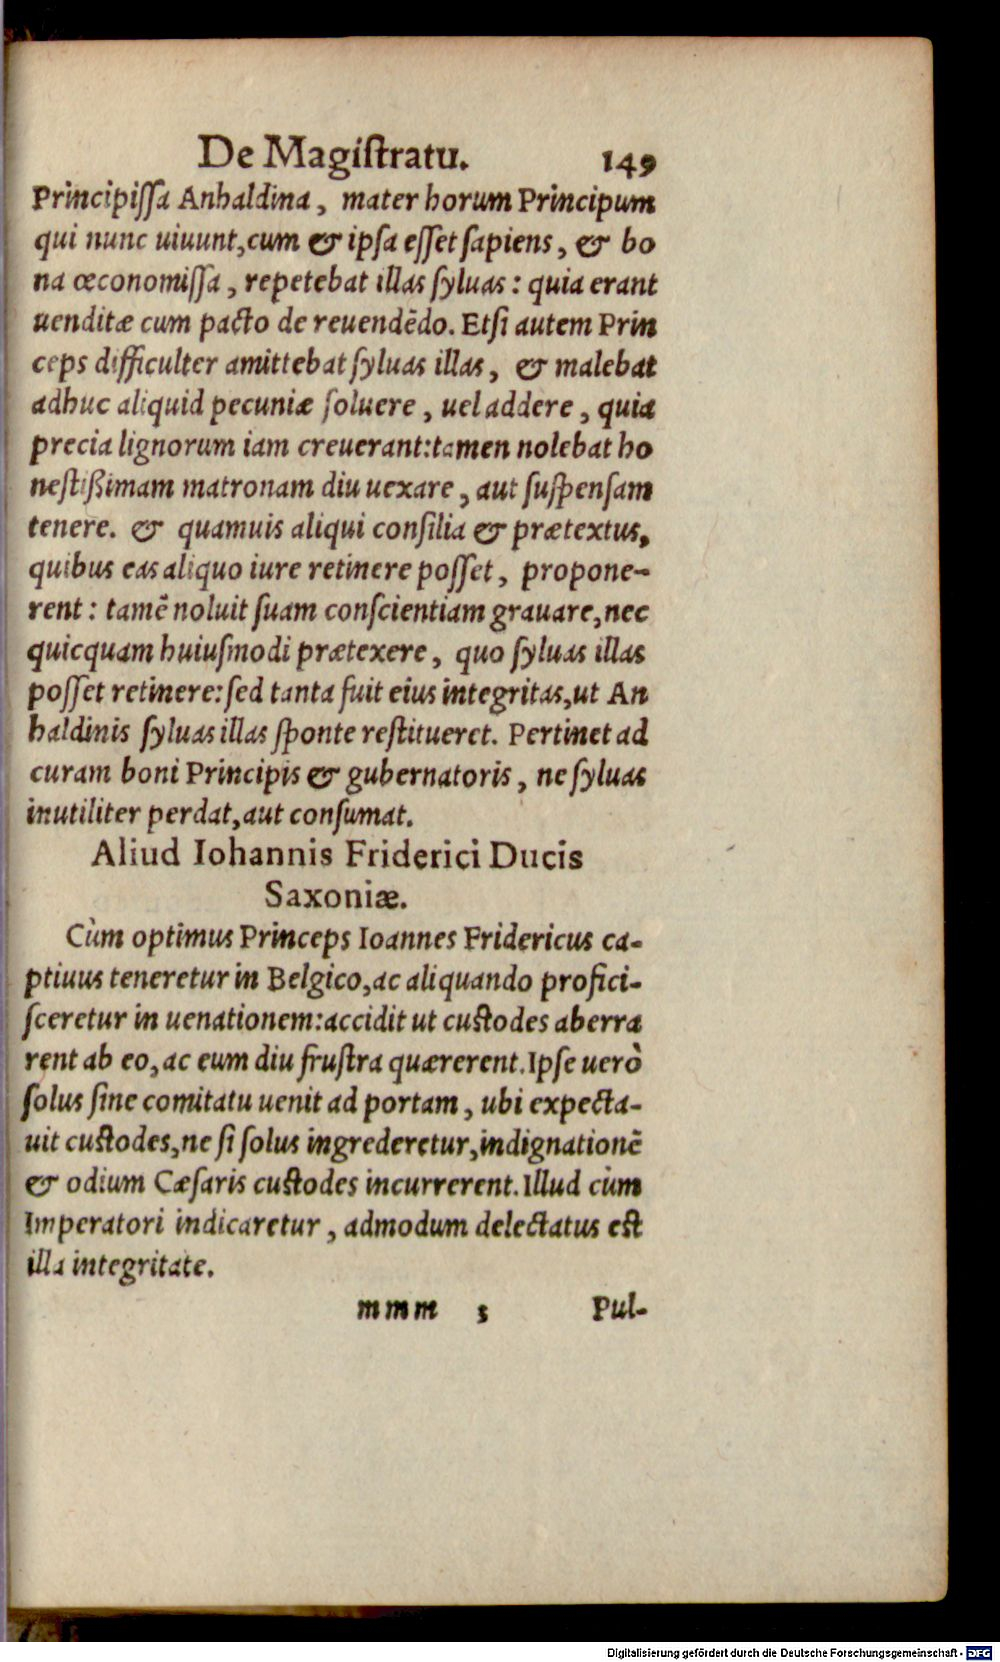 De Magiſtratu. 149
Principiſſa Anhaldina, mater horum Principum
qui nunc uiuunt, cum & ipſa eſſet ſapiens, & bo
na œconomiſſa, repetebat illas ſyluas: quia erant
uenditæ cum pacto de reuendẽdo. Etſi autem Prin
ceps difficulter amittebat ſyluas illas, & malebat
adhuc aliquid pecuniæ ſoluere, uel addere, quia
precia lignorum iam creuerant: tamen nolebat ho
neſtißimam matronam diu uexare, aut ſuſpenſam
tenere. & quamuis aliqui conſilia & prætextus,
quibus eas aliquo iure retinere poſſet, propone-
rent: tamẽ noluit ſuam conſcientiam grauare, nec
quicquam huiuſmodi prætexere, quo ſyluas illas
poſſet retinere: ſed tanta fuit eius integritas, ut An
haldinis ſyluas illas ſponte reſtitueret. Pertinet ad
curam boni Principis & gubernatoris, ne ſyluas
inutiliter perdat, aut conſumat.
Aliud Iohannis Friderici Ducis
Saxoniæ.
Cùm optimus Princeps Ioannes Fridericus ca-
ptiuus teneretur in Belgico, ac aliquando profici-
ſceretur in uenationem: accidit ut cuſtodes aberra
rent ab eo, ac eum diu fruſtra quærerent. Ipſe uerò
ſolus ſine comitatu uenit ad portam, ubi expecta-
uit cuſtodes, ne ſi ſolus ingrederetur, indignationẽ
& odium Cæſaris cuſtodes incurrerent. Illud cùm
Imperatori indicaretur, admodum delectatus eſt
illa integritate.
mmm 5 Pul-
Digitalisierung gefördert durch die Deutsche Forschungsgemeinschaft - DFG